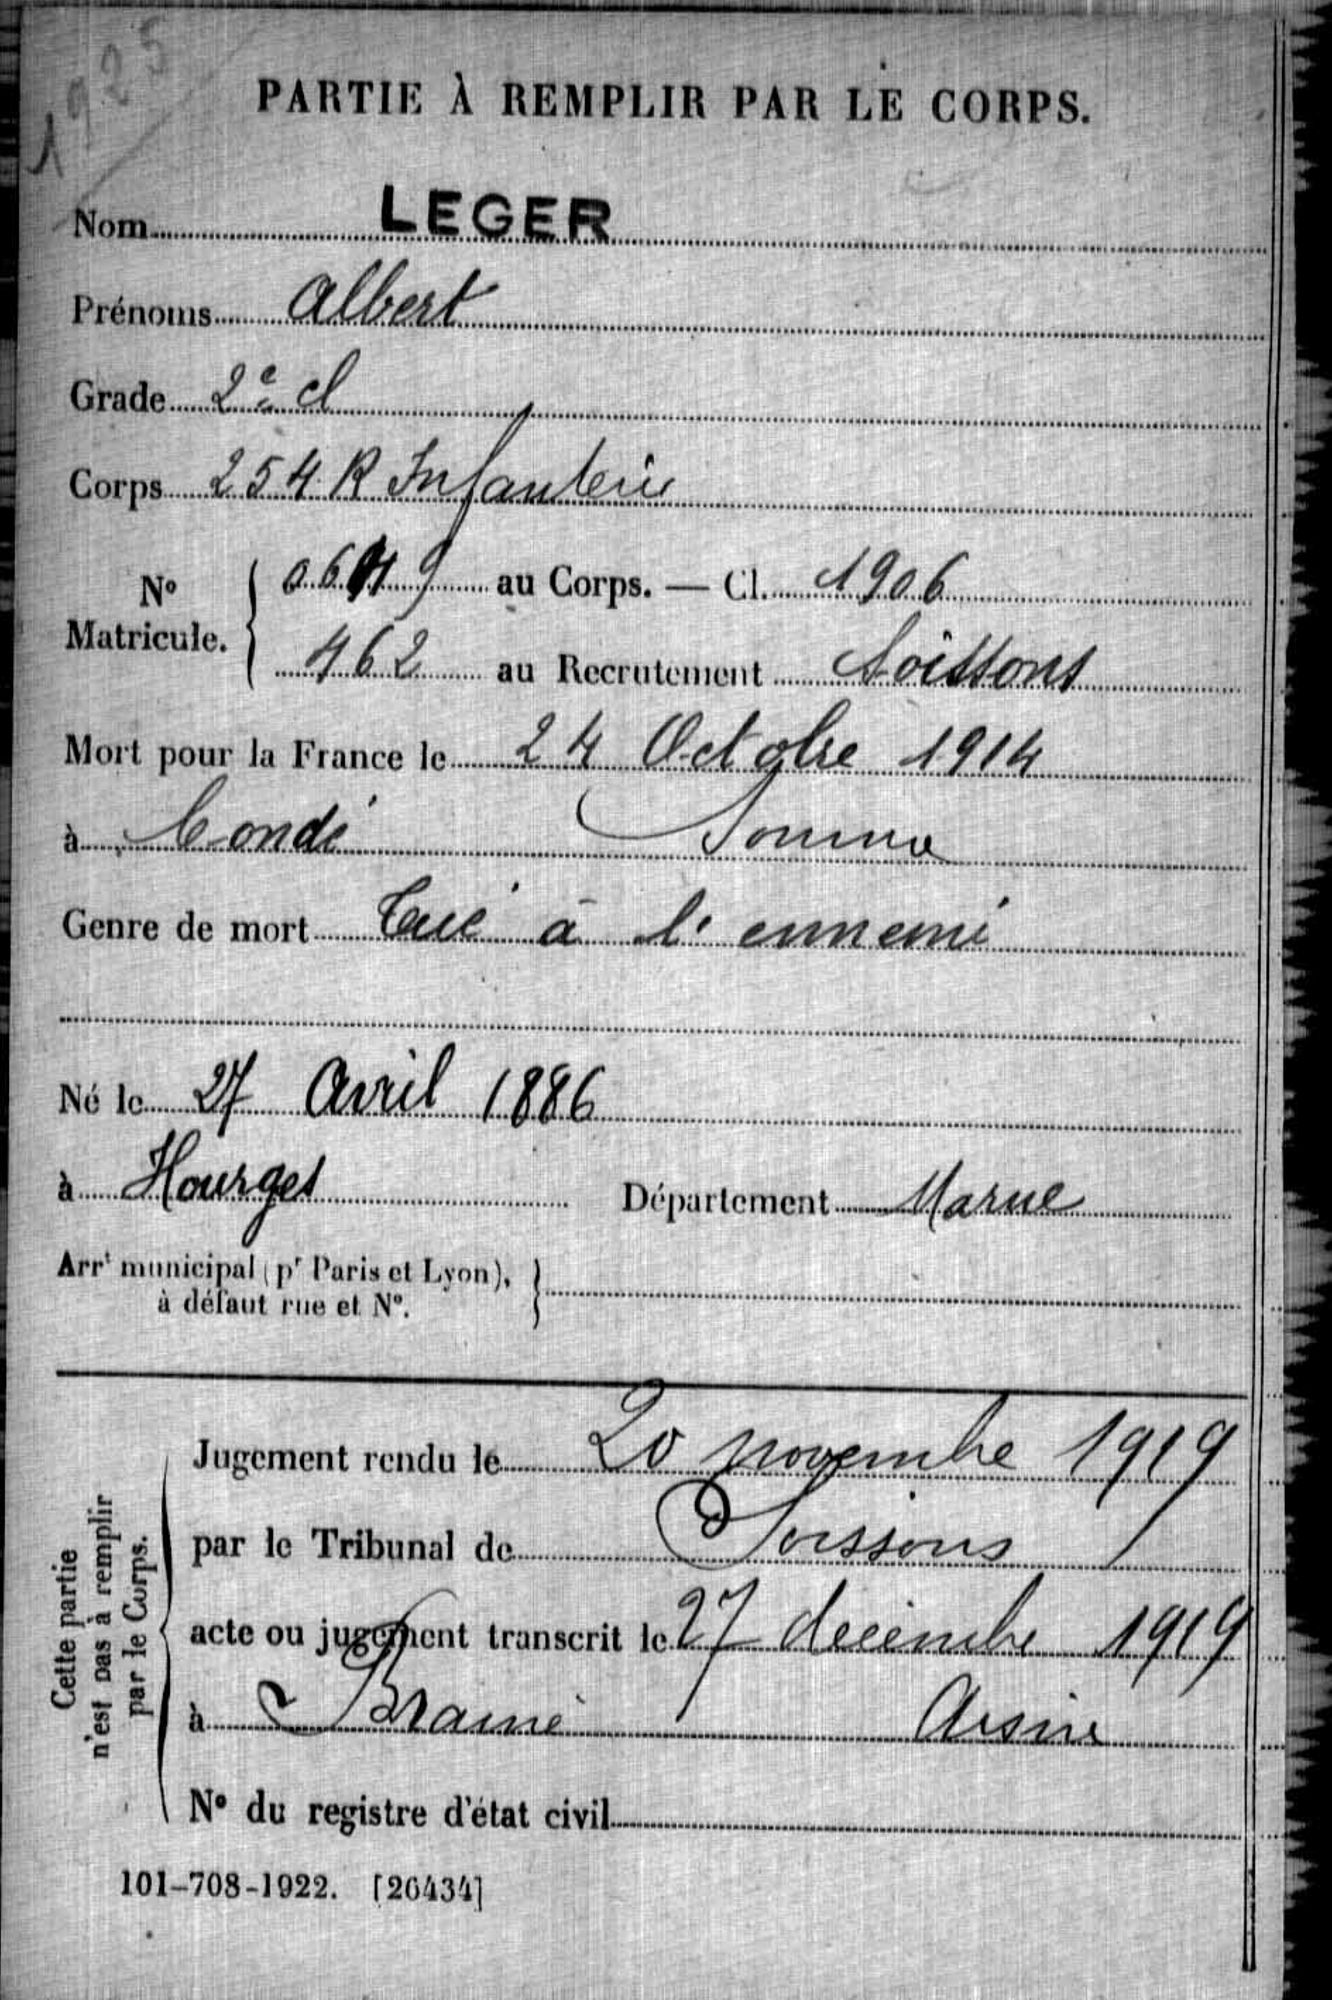 1925
PARTIE À REMPLIR PAR LE CORPS.
Nom LEGER
Prénoms Albert
Grade 2e cl
Corps 254 R Infanterie
No Matricule. 0649 au Corps. — Cl. 1906
462 au Recrutement Soissons
Mort pour la France le 24 Octobre 1914
à Condé Somme
Genre de mort Tué à l'ennemi
Né le 27 Avril 1886
à Hourges Département Marne
Arrt municipal (pr Paris et Lyon),
à défaut rue et No.
Cette partie
n'est pas à remplir
par le Corps.
Jugement rendu le 20 novembre 1919
par le Tribunal de Soissons
acte ou jugement transcrit le 27 décembre 1919
à Braine Aisne
No du registre d'état civil
101-708-1922. [26434]